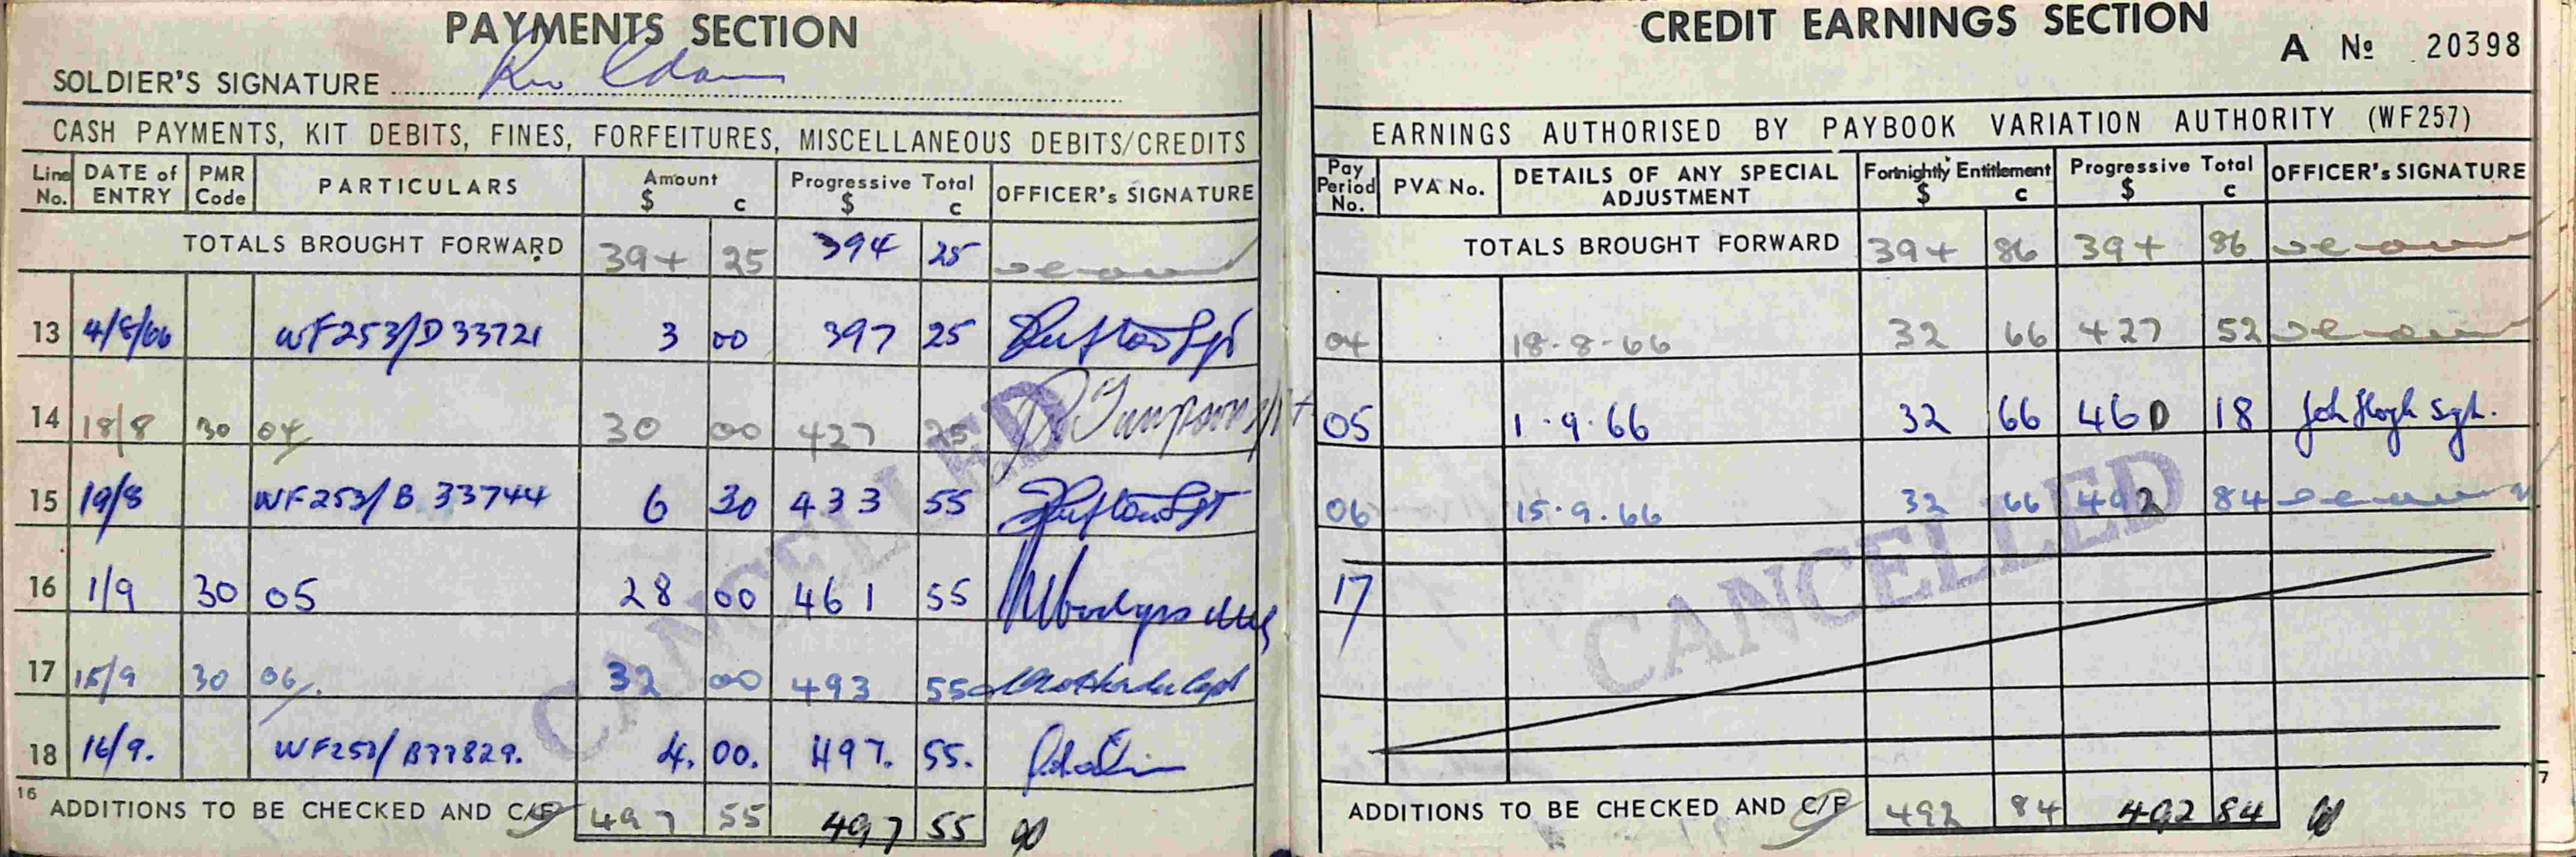 PAYMENTS SECTION
SOLDIER'S SIGNATURE
CASH PAYMENTS, KIT DEBITS, FINES, FORFEITURES, MISCELLANEOUS DEBITS/CREDITS
Line No. DATE of ENTRY PMR Code PARTICULARS Amount $ c Progressive Total $ c OFFICER's SIGNATURE
TOTALS BROUGHT FORWARD 394 25 394 25
13 4/8/66 WF253/D 33721 3 00 397 25
14 18/8 30 04 30 00 427 25
15 19/8 WF253/B 33744 6 30 433 55
16 1/9 30 05 28 00 461 55
17 15/9 30 06 32 00 493 55
18 16/9. WF253/B33829. 4. 00. 497. 55.
16 ADDITIONS TO BE CHECKED AND C/F 497 55 497 55
CANCELLED
CREDIT EARNINGS SECTION
A № 20398
EARNINGS AUTHORISED BY PAYBOOK VARIATION AUTHORITY (WF257)
Pay Period No. PVA No. DETAILS OF ANY SPECIAL ADJUSTMENT Fortnightly Entitlement $ c Progressive Total $ c OFFICER's SIGNATURE
TOTALS BROUGHT FORWARD 394 86 394 86
04 18-8-66 32 66 427 52
05 1.9.66 32 66 460 18 Sgt.
06 15.9.66 32 66 492 84
17
ADDITIONS TO BE CHECKED AND C/F 492 84 492 84
CANCELLED
7